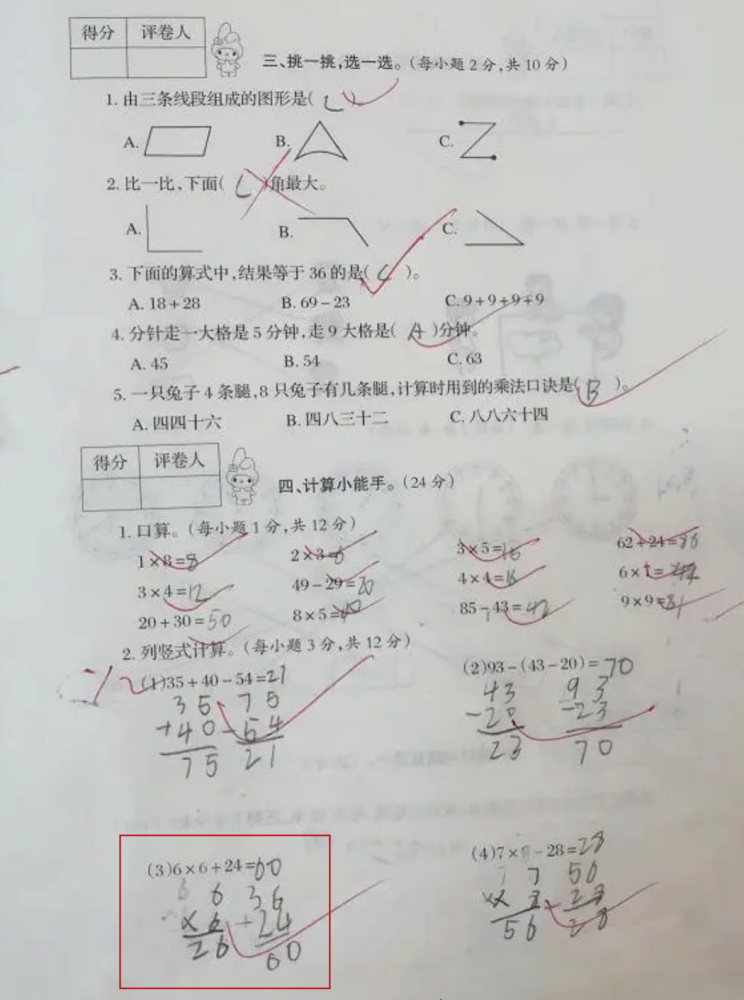 得分 评卷人
三、挑一挑,选一选。(每小题2分,共10分)
1. 由三条线段组成的图形是( C )
A. B. C.
2. 比一比,下面( C )角最大。
A. B. C.
3. 下面的算式中,结果等于36的是( C )。
A. 18+28 B. 69-23 C. 9+9+9+9
4. 分针走一大格是5分钟,走9大格是( A )分钟。
A. 45 B. 54 C. 63
5. 一只兔子4条腿,8只兔子有几条腿,计算时用到的乘法口诀是( B )。
A. 四四十六 B. 四八三十二 C. 八八六十四
得分 评卷人
四、计算小能手。(24分)
1. 口算。(每小题1分,共12分)
1×8=8 2×3=6 3×5=15 62+24=86
3×4=12 49-29=20 4×4=16 6×
20+30=50 8×5=40 85-43=42 9×9=81
2. 列竖式计算。(每小题3分,共12分)
(1)35+40-54=21 (2)93-(43-20)=70
35 75 43 93
+40 -54 -20 -23
75 21 23 70
(3)6×6+24=60 (4)7×8-28=28
6 36 7 56
×6 +24
26 60 56 28